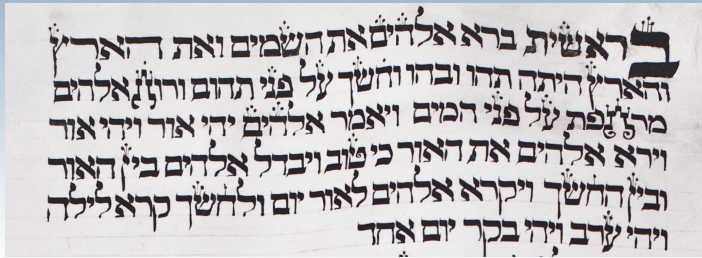 בראשית ברא אלהים את השמים ואת הארץ
והארץ היתה תהו ובהו וחשך על פני תהום ורוח אלהים
מרחפת על פני המים ויאמר אלהים יהי אור ויהי אור
וירא אלהים את האור כי טוב ויבדל אלהים בין האור
ובין החשך ויקרא אלהים לאור יום ולחשך קרא לילה
ויהי ערב ויהי בקר יום אחד